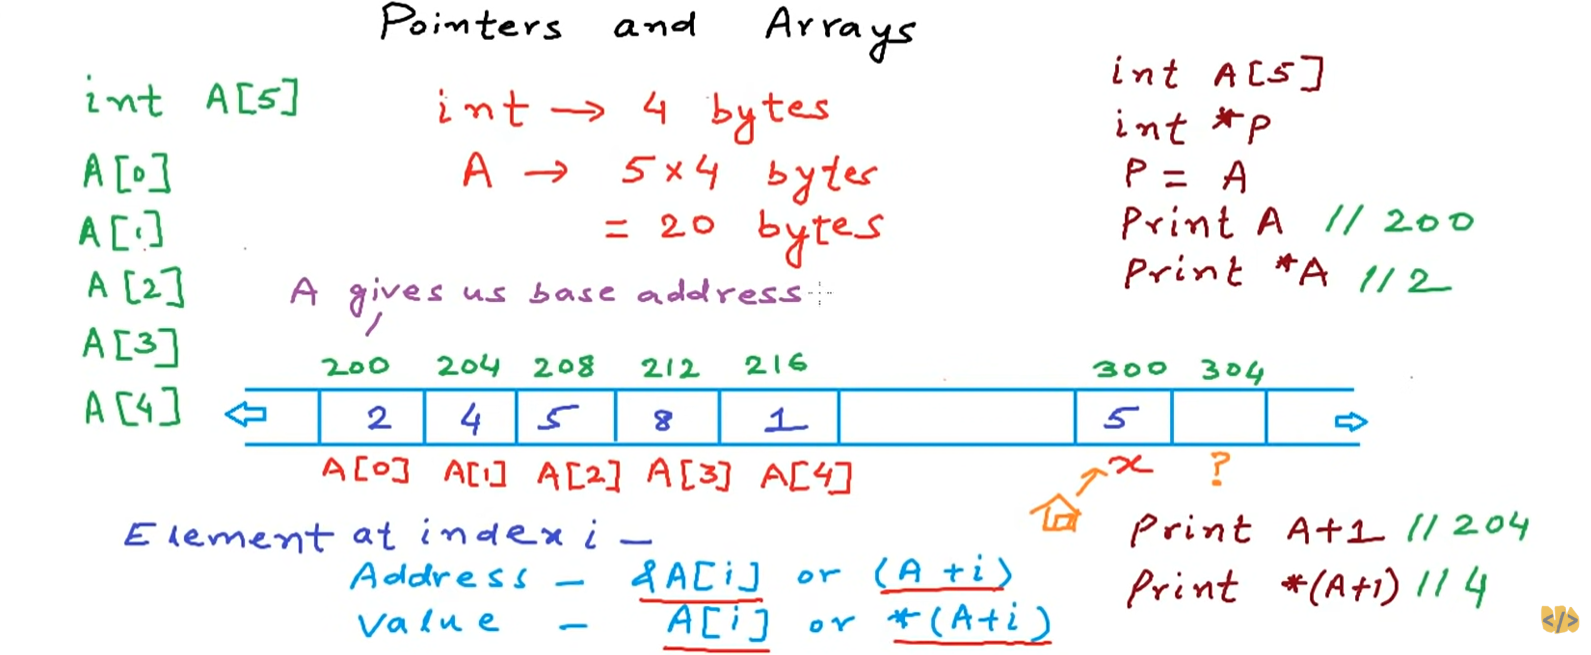 Pointers and Arrays
int A[5]
A[0]
A[1]
A[2]
A[3]
A[4]
int → 4 bytes
A → 5 x 4 bytes
= 20 bytes
A gives us base address
int A[5]
int *P
P = A
Print A // 200
Print *A // 2
200 204 208 212 216 300 304
2 4 5 8 1 5
A[0] A[1] A[2] A[3] A[4] x ?
Element at index i –
Address – &A[i] or (A + i)
Value – A[i] or *(A+i)
Print A+1 // 204
Print *(A+1) // 4
</>